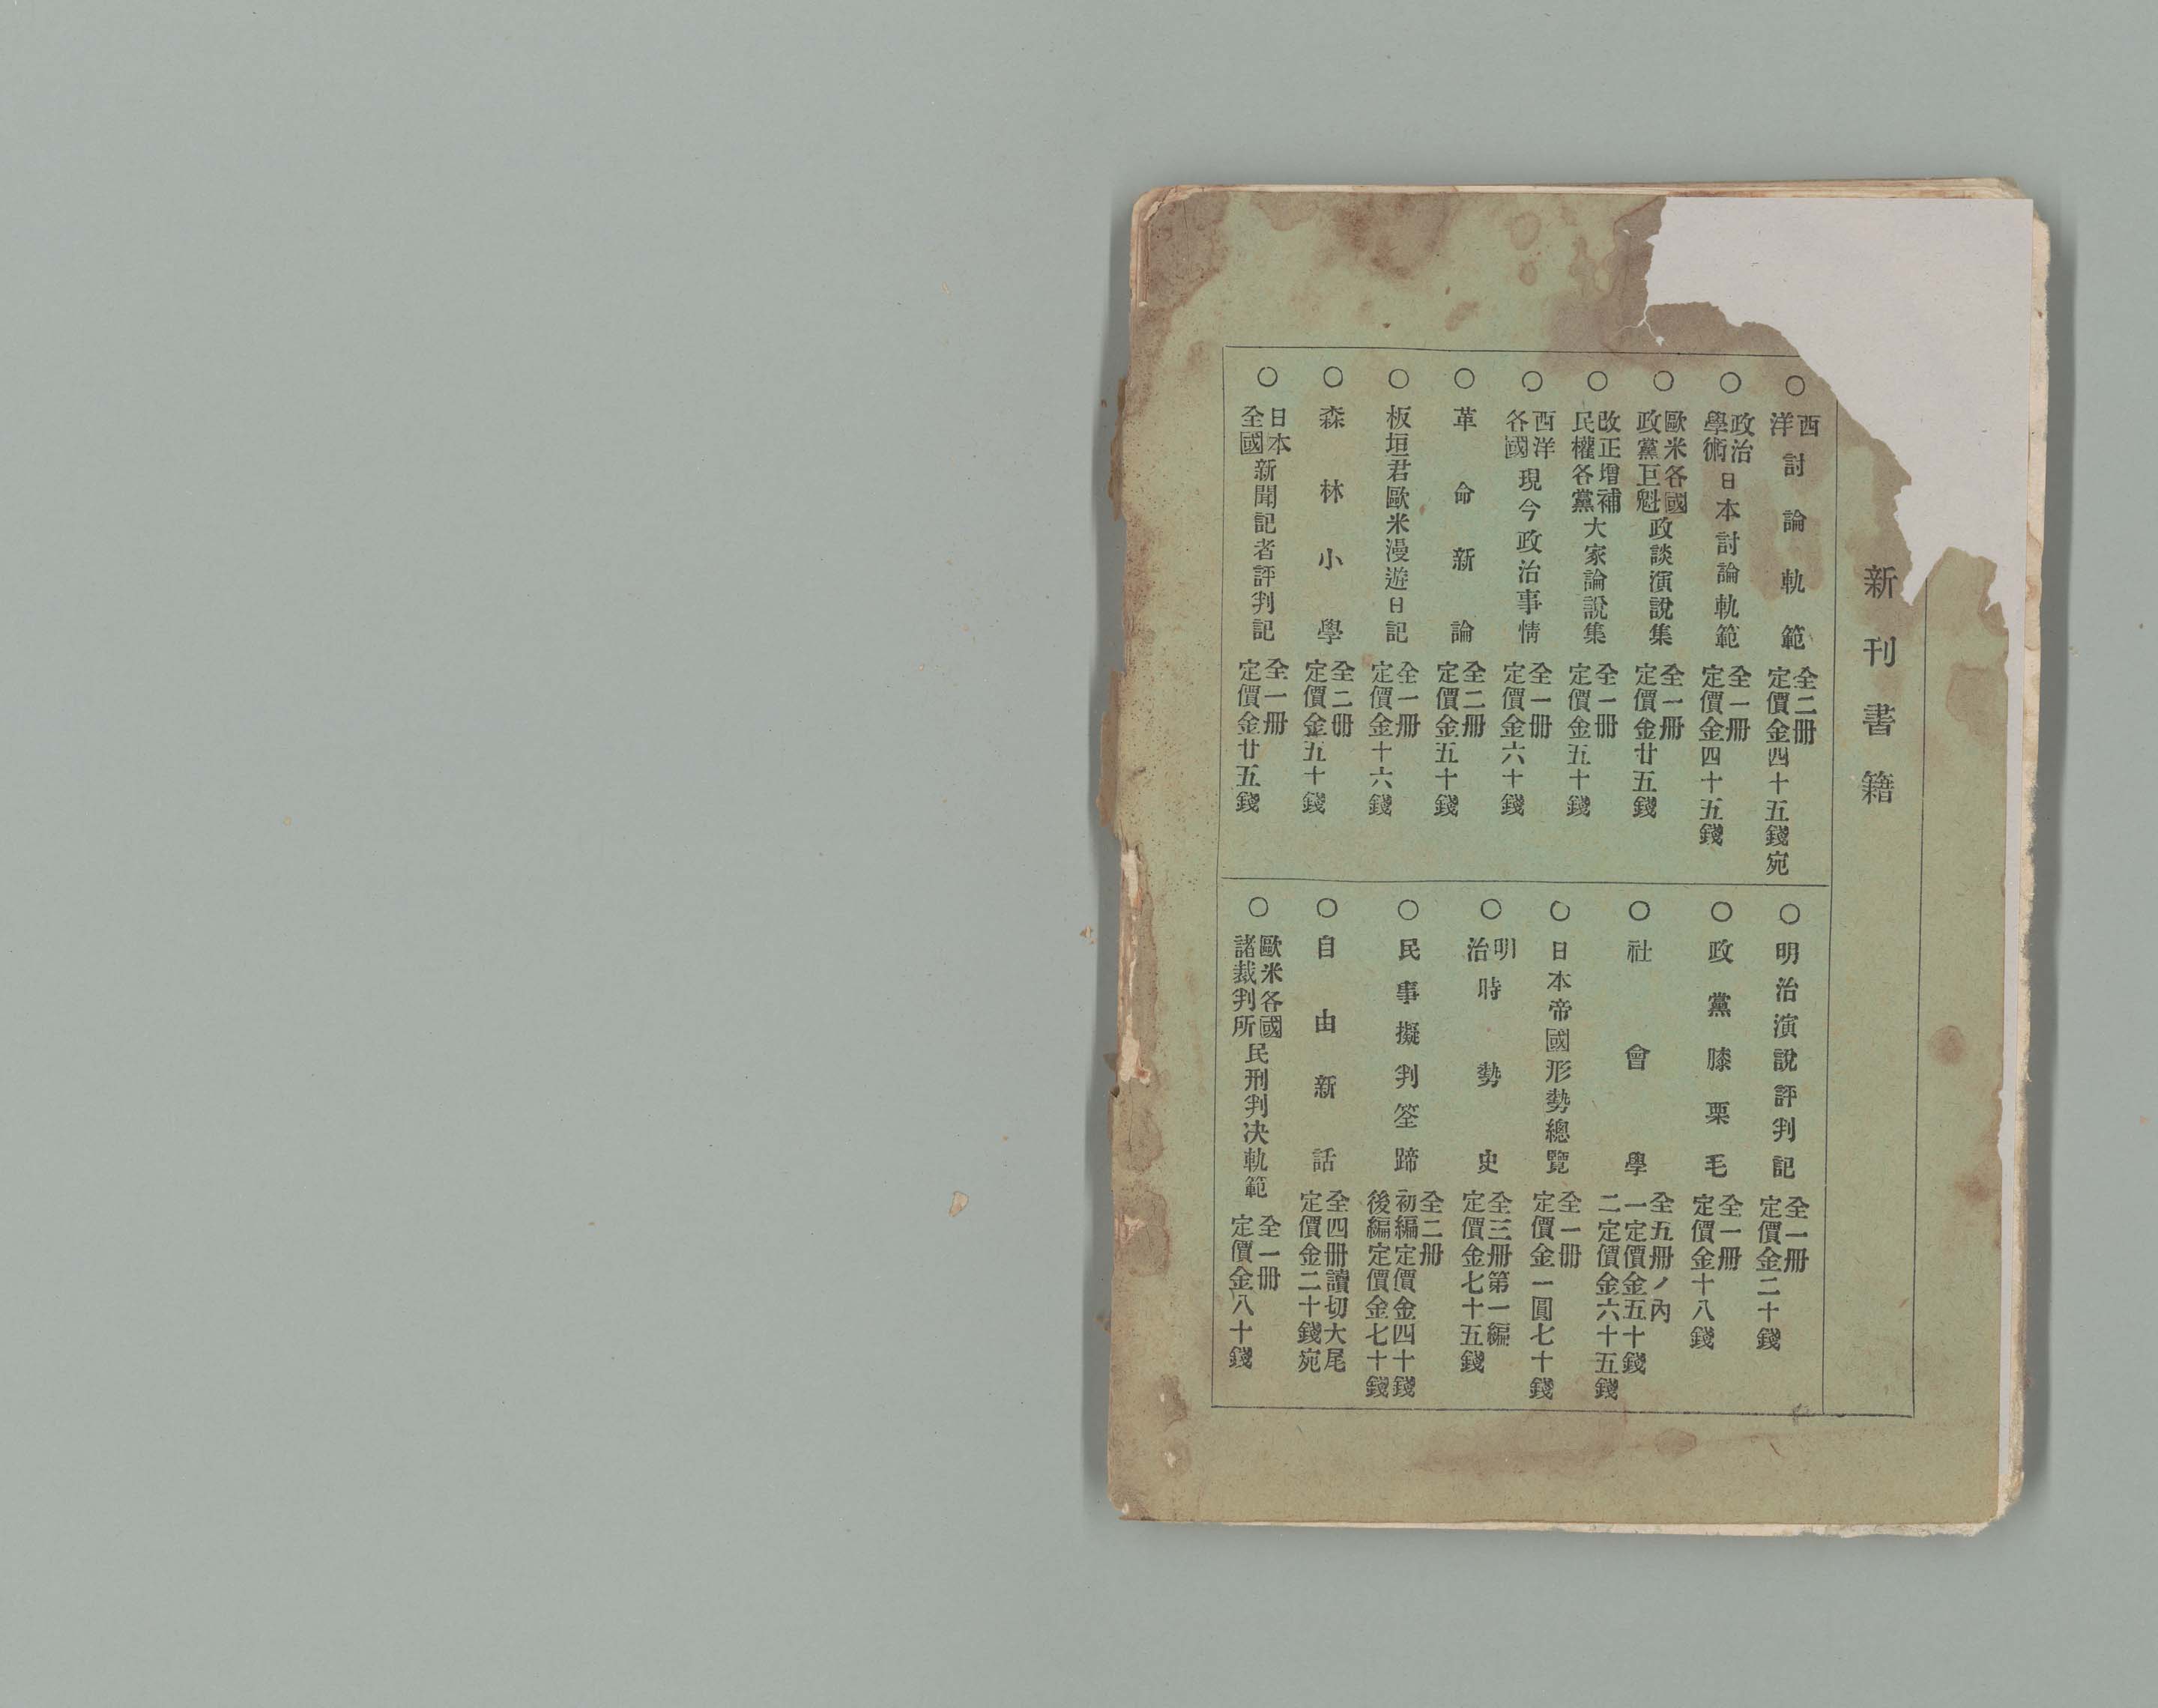 新刊書籍
○西洋討論軌範 全二冊 定價金四十五錢宛
○政治學術日本討論軌範 全一冊 定價金四十五錢
○歐米各國政黨巨魁政談演說集 全一冊 定價金廿五錢
○改正增補民權各黨大家論說集 全一冊 定價金五十錢
○西洋各國現今政治事情 全一冊 定價金六十錢
○革命新論 全二冊 定價金五十錢
○板垣君歐米漫遊日記 全一冊 定價金十六錢
○森林小學 全二冊 定價金五十錢
○日本全國新聞記者評判記 全一冊 定價金廿五錢
○明治演說評判記 全一冊 定價金二十錢
○政黨膝栗毛 全一冊 定價金十八錢
○社會學 全五冊ノ內 一定價金五十錢 二定價金六十五錢
○日本帝國形勢總覽 全一冊 定價金一圓七十錢
○明治時勢史 全三冊第一編 定價金七十五錢
○民事擬判筌蹄 全二冊 初編定價金四十錢 後編定價金七十錢
○自由新話 全四冊讀切大尾 定價金二十錢宛
○歐米各國諸裁判所民刑判決軌範 全一冊 定價金八十錢